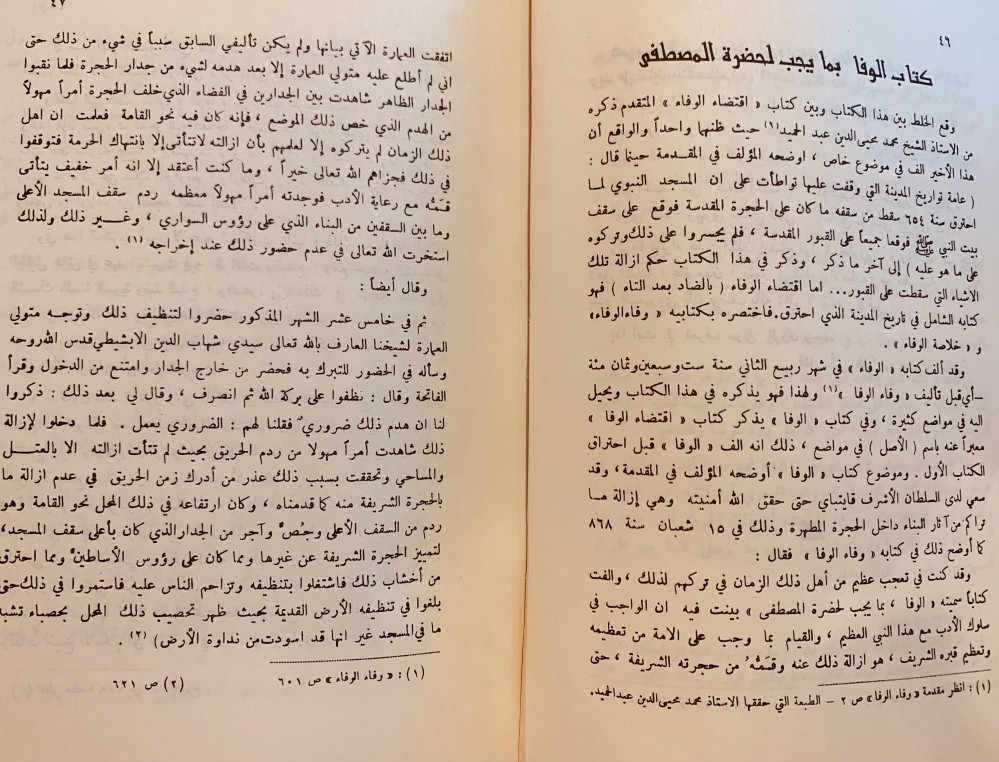 ٤٦
كتاب الوفا بما يجب لحضرة المصطفى
وقع الخلط بين هذا الكتاب وبين كتاب « اقتضاء الوفاء » المتقدم ذكره
من الاستاذ الشيخ محمد محيي الدين عبد الحميد (١) حيث ظنها واحداً والواقع أن
هذا الأخير الف في موضوع خاص ، اوضحه المؤلف في المقدمة حينما قال :
( عامة تواريخ المدينة التي وقفت عليها تواطأت على ان المسجد النبوي لما
احترق سنة ٦٥٤ سقط من سقفه ما كان على الحجرة المقدسة فوقع على سقف
بيت النبي ﷺ فوقعا جميعاً على القبور المقدسة ، فلم يجسروا على ذلك وتركوه
على ما هو عليه ) إلى آخر ما ذكر ، وذكر في هذا الكتاب حكم ازالة تلك
الاشياء التي سقطت على القبور... اما اقتضاء الوفاء ( بالضاد بعد التاء ) فهو
كتابه الشامل في تاريخ المدينة الذي احترق. فاختصره بكتابيه « وفاء الوفاء »
و « خلاصة الوفاء » .
وقد ألف كتابه « الوفاء » في شهر ربيع الثاني سنة ست وسبعين وثمان مئة
-أي قبل تأليف « وفاء الوفا » (١) ولهذا فهو يذكره في هذا الكتاب ويحيل
اليه في مواضع كثيرة ، وفي كتاب « الوفا » يذكر كتاب « اقتضاء الوفا »
معبراً عنه باسم ( الأصل ) في مواضع ، ذلك انه الف « الوفا » قبل احتراق
الكتاب الأول . وموضوع كتاب « الوفا » أوضحه المؤلف في المقدمة ، وقد
سعي لدى السلطان الأشرف قايتباي حتى حقق الله أمنيته وهي إزالة ما
تراكم من آثار البناء داخل الحجرة المطهرة وذلك في ١٥ شعبان سنة ٨٦٨
كما أوضح ذلك في كتابه « وفاء الوفا » فقال :
وقد كنت في تعجب عظيم من أهل ذلك الزمان في تركهم لذلك ، والفت
كتاباً سميته « الوفا ، بما يجب لحضرة المصطفى » بينت فيه ان الواجب في
سلوك الأدب مع هذا النبي العظيم ، والقيام بما وجب على الامة من تعظيمه
وتعظيم قبره الشريف ، هو ازالة ذلك عنه وقَمّهُ من حجرته الشريفة ، حتى
(١) : انظر مقدمة « وفاء الوفا » ص ٢ – الطبعة التي حققها الاستاذ محمد محيي الدين عبد الحميد.
٤٧
اتفقت العمارة الآتي بيانها ولم يكن تأليفي السابق سبباً في شيء من ذلك حتى
اني لم أطلع عليه متولي العمارة إلا بعد هدمه لشيء من جدار الحجرة فلما نقبوا
الجدار الظاهر شاهدت بين الجدارين في الفضاء الذي خلف الحجرة أمراً مهولاً
من الهدم الذي خص ذلك الموضع ، فإنه كان فيه نحو القامة فعلمت ان اهل
ذلك الزمان لم يتركوه إلا لعلمهم بأن ازالته لا تتأتى إلا بانتهاك الحرمة فتوقفوا
في ذلك فجزاهم الله تعالى خيراً ، وما كنت أعتقد إلا انه أمر خفيف يتأتى
قَمّهُ مع رعاية الأدب فوجدته أمراً مهولاً معظمه ردم سقف المسجد الأعلى
وما بين السقفين من البناء الذي على رؤوس السواري ، وغير ذلك ولذلك
استخرت الله تعالى في عدم حضور ذلك عند إخراجه (١) .
وقال أيضاً :
ثم في خامس عشر الشهر المذكور حضروا لتنظيف ذلك وتوجه متولي
العمارة لشيخنا العارف بالله تعالى سيدي شهاب الدين الابشيطي قدس الله روحه
وسأله في الحضور للتبرك به فحضر من خارج الجدار وامتنع من الدخول وقرأ
الفاتحة وقال : نظفوا على بركة الله ثم انصرف ، وقال لي بعد ذلك : ذكروا
لنا ان هدم ذلك ضروري فقلنا لهم : الضروري يعمل . فلما دخلوا لإزالة
ذلك شاهدت أمراً مهولا من ردم الحريق بحيث لم تتأت ازالته الا بالعتل
والمساحي وتحققت بسبب ذلك عذر من أدرك زمن الحريق في عدم ازالة ما
بالحجرة الشريفة منه كما قدمناه ، وكان ارتفاعه في ذلك المحل نحو القامة وهو
ردم من السقف الأعلى وجُصٌ وآجر من الجدار الذي كان بأعلى سقف المسجد،
لتمييز الحجرة الشريفة عن غيرها ومما كان على رؤوس الأساطين ومما احترق
من أخشاب ذلك فاشتغلوا بتنظيفه وتزاحم الناس عليه فاستمروا في ذلك حتى
بلغوا في تنظيفه الأرض القديمة بحيث ظهر تحصيب ذلك المحل بحصباء تشبه
ما في المسجد غير انها قد اسودت من نداوة الأرض ) (٢) .
(١) : « وفاء الوفاء » ص ٦٠١ (٢) ص ٦٢١